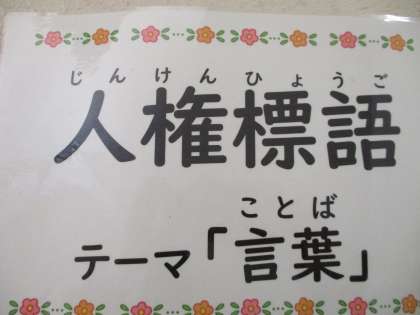 じんけんひょうご
人権標語
ことば
テーマ「言葉」